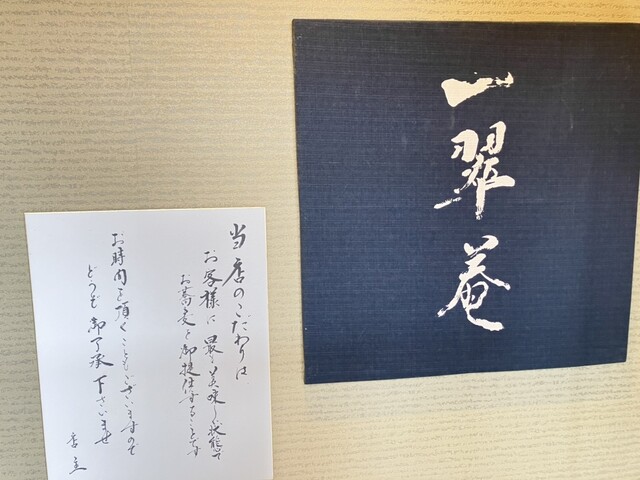 一翠庵
当店のこだわりは
お客様に最も美味しい状態で
お蕎麦を御提供することです
お時間を頂くこともございますので
どうぞ御了承下さいませ
店主